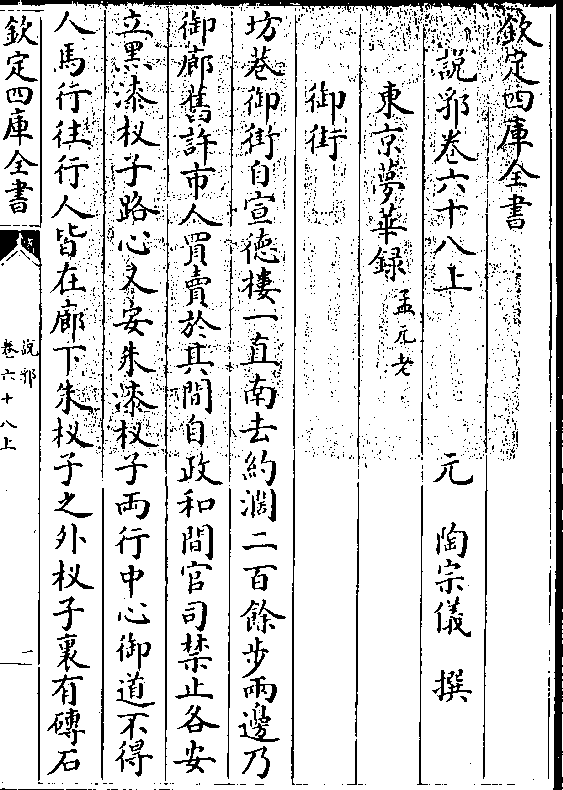 欽定四庫全書
說郛卷六十八上 元 陶宗儀 撰
東京夢華録 孟元老
御街
坊巷御街自宣徳樓一直南去約濶二百餘步兩邊乃
御廊舊許市人買賣於其間自政和間官司禁止各安
立黑漆杈子路心又安朱漆杈子兩行中心御道不得
人馬行往行人皆在廊下朱杈子之外杈子裏有磚石
欽定四庫全書
說郛
卷六十八上
一